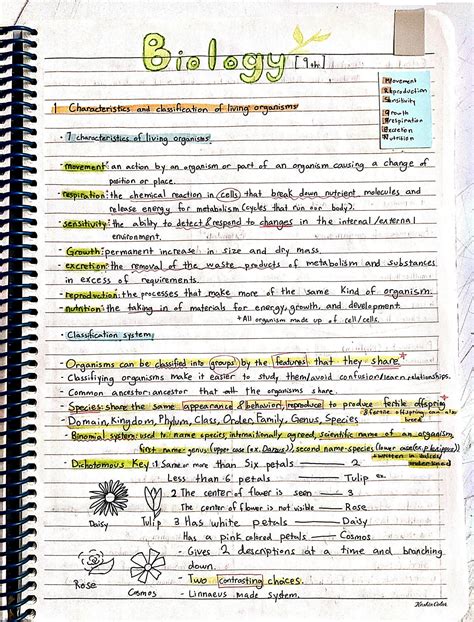 Biology [9th]
Movement
Reproduction
Sensitivity
Growth
Respiration
Excretion
Nutrition
1 Characteristics and classification of living organisms
• 7 characteristics of living organisms
• movement: an action by an organism or part of an organism causing a change of
position or place.
• respiration: the chemical reaction in (cells) that break down nutrient molecules and
release energy for metabolism (cycles that run our body).
• sensitivity: the ability to detect & respond to changes in the internal/external
environment.
• Growth: permanent increase in size and dry mass.
• excretion: the removal of the waste products of metabolism and substances
in excess of requirements.
• reproduction: the processes that make more of the same kind of organism.
• nutrition: the taking in of materials for energy, growth, and development.
*All organism made up of cell/cells.
• Classification system
• Organisms can be classified into groups by the features that they share*
• Classifiying organisms make it easier to study them/avoid confusion/learn relationships.
• Common ancestor: ancestor that all the organisms share.
• Species: share the same appearance & behavior, reproduce to produce fertile offspring
* fertile offspring can also
breed
Domain, Kingdom, Phylum, Class, Order, Family, Genus, Species
• Binomial system: used to name species, internationally agreed, scientific name of an organism,
first name: genus (upper case (ex. Danaus)), second name: species (lower case (ex. plexippus))
* written in italics/
underlined
Dichotomous Key: 1 Same or more than six petals — 2
Less than 6 petals — Tulip ex.
2 The center of flower is seen — 3
The center of flower is not visible — Rose
3 Has white petals — Daisy
Has a pink colored petals — Cosmos
Daisy
Tulip
Rose
Cosmos
- Gives 2 descriptions at a time and branching
down.
- Two contrasting choices.
- Linnaeus made system.